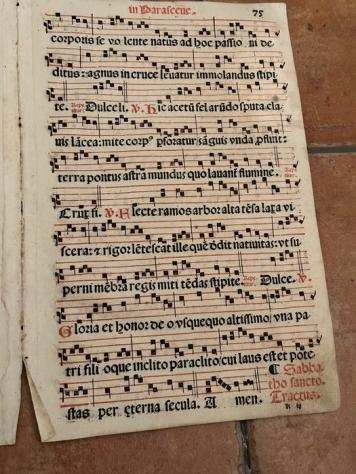 in Parasceue. 75
corporis se vo lente natus ad hoc passio ni de
ditus: agnus in cruce leuatur immolandus stipi
te. Dulce li. V. Hic acetū fel arūdo sputa cla
uis lācea: mite corp⁹ pforatur sāguis vnda pfluit:
terra pontus astra mundus quo lauant flumine.
Crux fi. V. Flecte ramos arbor alta tēsa laxa vi
scera: & rigor lētescat ille quē dedit natiuitas: vt su
perni mēbra regis miti tēdas stipite. Dulce. V.
Gloria et honor de o vsquequo altissimo: vna pa
tri fili oque inclito paraclito: cui laus est et pote
stas per eterna secula. A men.
Sabba
tho sancto.
Tractus.